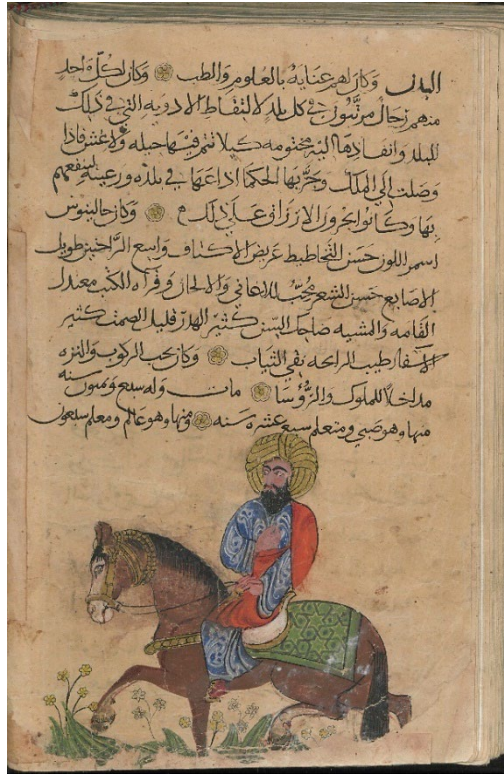 البدن وكان لهم عنايه بالعلوم والطب وكان لكل واحد
منهم رجال مرتبون في كل بلد لالتقاط الادويه التي في ذلك
للبلد وانفادها اليه مختومه كيلا تتم فيها حيله ولا غش فاذا
وصلت الي الملك وجربها الحكما اذاعها في بلده ورعيته لينفعهم
بها وكانوا يجرون الارزاق علي ذلك وكان جالينوس
اسمر اللون حسن التخاطيط عريض الاكتاف واسع الراحتين طويل
الاصابع حسن الشعر محب للاغاني والالحان وقراه الكتب معتدل
القامه والمشيه ضاحك السن كثير الهدر قليل الصمت كثير
الاسفار طيب الرائحه نقي الثياب وكان يحب الركوب والنزه
مداخلا للملوك والرؤسا مات وله سبع وثمنون سنه
منها وهو صبي ومتعلم سبع عشره سنه ومنها وهو عالم ومعلم سبعون